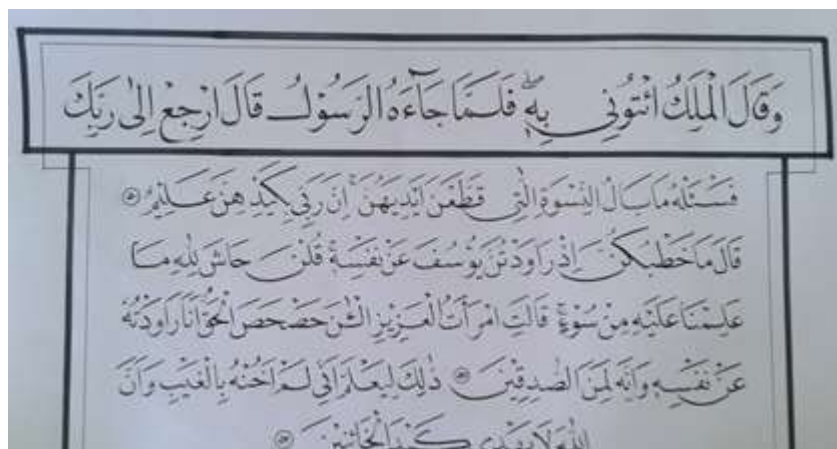 وَقَالَ الْمَلِكُ ائْتُونِي بِهٖۚ فَلَمَّا جَآءَهُ الرَّسُوْلُ قَالَ ارْجِعْ اِلٰى رَبِّكَ
فَسْـَٔلْهُ مَا بَالُ النِّسْوَةِ الّٰتِى قَطَّعْنَ اَيْدِيَهُنَّ ۗ اِنَّ رَبِّيْ بِكَيْدِهِنَّ عَلِيْمٌ ۝٥٠
قَالَ مَا خَطْبُكُنَّ اِذْ رَاوَدْتُّنَّ يُوْسُفَ عَنْ نَفْسِهٖۗ قُلْنَ حَاشَ لِلّٰهِ مَا
عَلِمْنَا عَلَيْهِ مِنْ سُوْۤءٍ ۗ قَالَتِ امْرَاَتُ الْعَزِيْزِ الْـٰٔنَ حَصْحَصَ الْحَقُّ اَنَا رَاوَدْتُّهٗ
عَنْ نَفْسِهٖ وَاِنَّهٗ لَمِنَ الصّٰدِقِيْنَ ۝٥١ ذٰلِكَ لِيَعْلَمَ اَنِّيْ لَمْ اَخُنْهُ بِالْغَيْبِ وَاَنَّ
اللّٰهَ لَا يَهْدِيْ كَيْدَ الْخَاۤئِنِيْنَ ۝٥٢